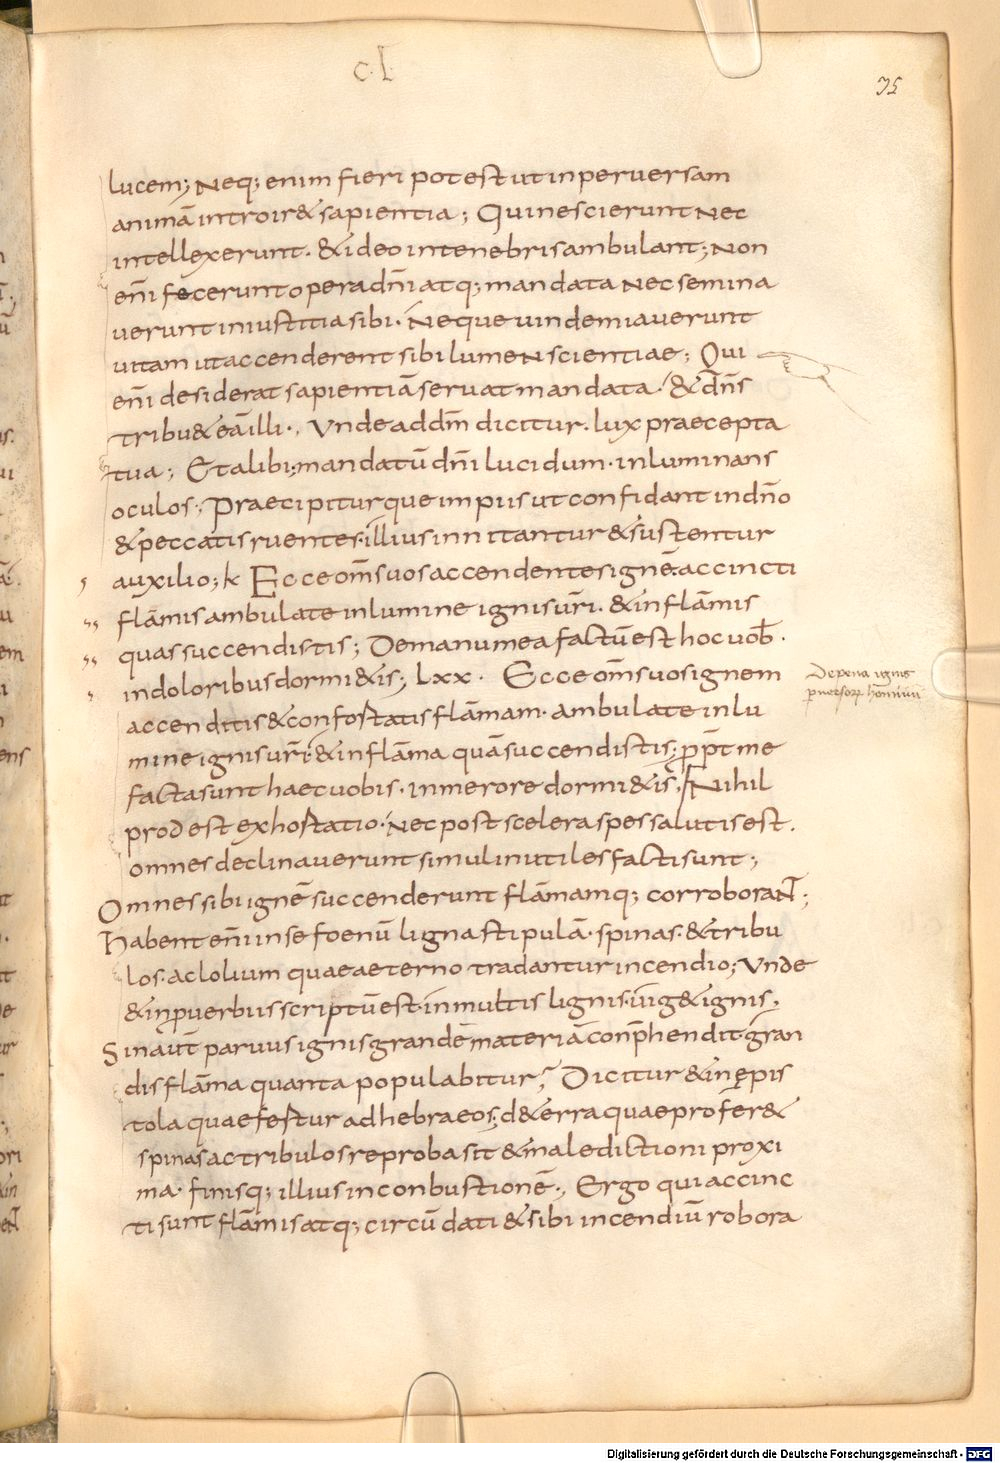 c. L
35
lucem; Neq; enim fieri potest ut in perversam
animā introir& sapientia; Qui nescierunt nec
intellexerunt. & ideo in tenebris ambulant; Non
eni͞ fecerunt opera dn͞i atq; mandata nec semina
verunt in iustitia sibi. Neque uindemiaverunt
uitam ut accenderent sibi lumen scientiae; Qui
eni͞ desiderat sapientiā servat mandata. & dn͞s
tribu& eā illi., Unde ad dm͞ dicitur. lux praecepta
tua; Et alibi; mandatū dn͞i lucidum. inluminans
oculos; Praecipiturque impiis ut confidant in dn͞o
& peccatis ruentes. illius innitantur & sustentur
auxilio; k Ecce om͞s uos accendentes ignē. accincti
flāmis ambulate in lumine ignis ur͞i. & in flāmis
quas succendistis; De manu mea factū est hoc uob̄.
in doloribus dormi&is; Lxx. Ecce om͞s uos ignem
accenditis & confostatis flāmam. ambulate in lu
mine ignis ur͞i. & in flāma quā succendistis; pp͞t me
facta sunt haec uobis. in merore dormi&is; Nihil
prodest exhostatio. Nec post scelera spes salutis est.
omnes declinaverunt simul inutiles facti sunt;
Omnes sibi ignē succenderunt flāmamq; corroboraNT;
Habent eni͞ in se foenū ligna stipulā. spinas. & tribu
los. ac lolium quae aeterno tradantur incendio; Unde
& in pverbiis scriptū est. in multis lignis. uig& ignis,
Sin aut͞ parvus ignis grandē materiā conp͞hendit. gran
dis flāma quanta populabitur; Dicitur & in epis
tola quae festur ad hebraeos; d& erra quae profer&
spinas ac tribulos reproba sit & maledictioni proxi
ma. finisq; illius in conbustionē., Ergo qui accinc
ti sunt flāmis atq; circū dati & sibi incendiū robora
De pena ignis
pversorꝝ hominū